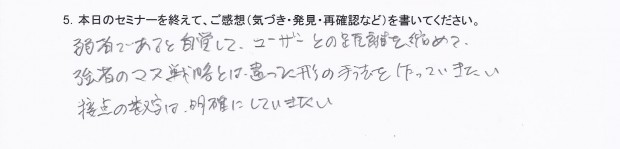 5. 本日のセミナーを終えて、ご感想（気づき・発見・再確認など）を書いてください。
弱者であると自覚して、ユーザーとの距離を縮めて、
強者のマス戦略とは違った形の手法を作っていきたい
接点の数字は、明確にしていきたい